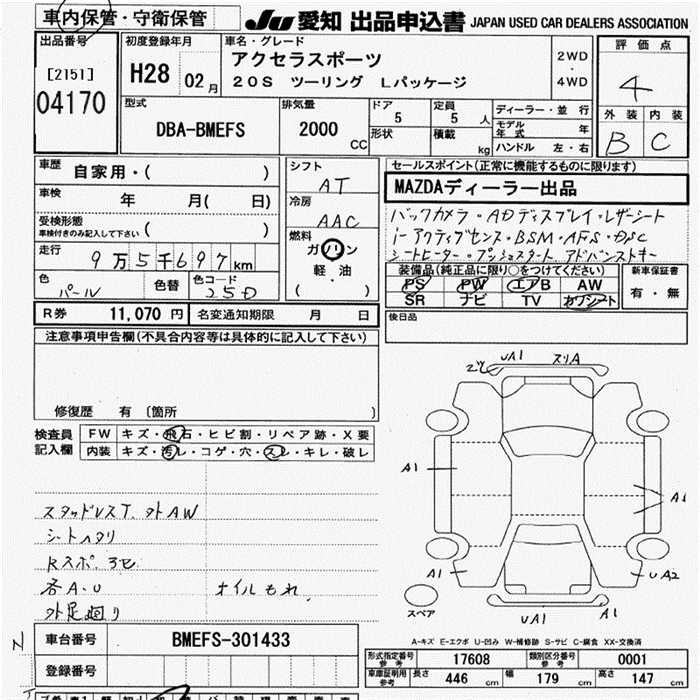 車内保管・守衛保管
JU 愛知 出品申込書 JAPAN USED CAR DEALERS ASSOCIATION
出品番号
[2151]
04170
初度登録年月
H28 02月
車名・グレード
アクセラスポーツ
20S ツーリング Lパッケージ
2WD
・
4WD
評価点
4
外装 内装
B C
型式
DBA-BMEFS
排気量
2000 CC
ドア 5
形状
定員 5 人
積載 kg
ディーラー・並行
モデル年式 年
ハンドル 左・右
車歴 自家用・( )
車検 年 月( 日)
受検形態
車検付きのみ記入して下さい ( )
走行
9万5千697km
色 パール
色替
色コード 25D
シフト
AT
冷房
AAC
燃料
ガソリン
軽・油
( )
セールスポイント(正常に機能するものに限ります)
MAZDAディーラー出品
バックカメラ・ADディスプレイ・レザーシート
i-アクティブセンス・BSM・AFS・DSC
シートヒーター・プッシュスタート アドバンストキー
装備品(純正品に限り○をつけてください)
PS PW エアB AW
SR ナビ TV カワシート
新車保証書
有・無
R券 11,070円 名変通知期限 月 日
後日品
注意事項申告欄(不具合内容等は具体的に記入して下さい)
修復歴 有 〔箇所 〕
検査員
記入欄
FW キズ・飛石・ヒビ割・リペア跡・X要
内装 キズ・汚レ・コゲ・穴・スレ・キレ・破レ
スタッドレスT. 外AW
シートヘタリ
Rスポ. 3セ
各A.U オイルもれ.
外足廻り
UA1 スリA
A1
A1
A1
A1
UA2
UA1
A1
スペア
A-キズ E-エクボ U-凹み W-補修跡 S-サビ C-腐食 XX-交換済
車台番号 BMEFS-301433
登録番号
形式指定番号 参考 17608 類別区分番号 参考 0001
車庫証明 参考 長さ 446 cm 幅 179 cm 高さ 147 cm